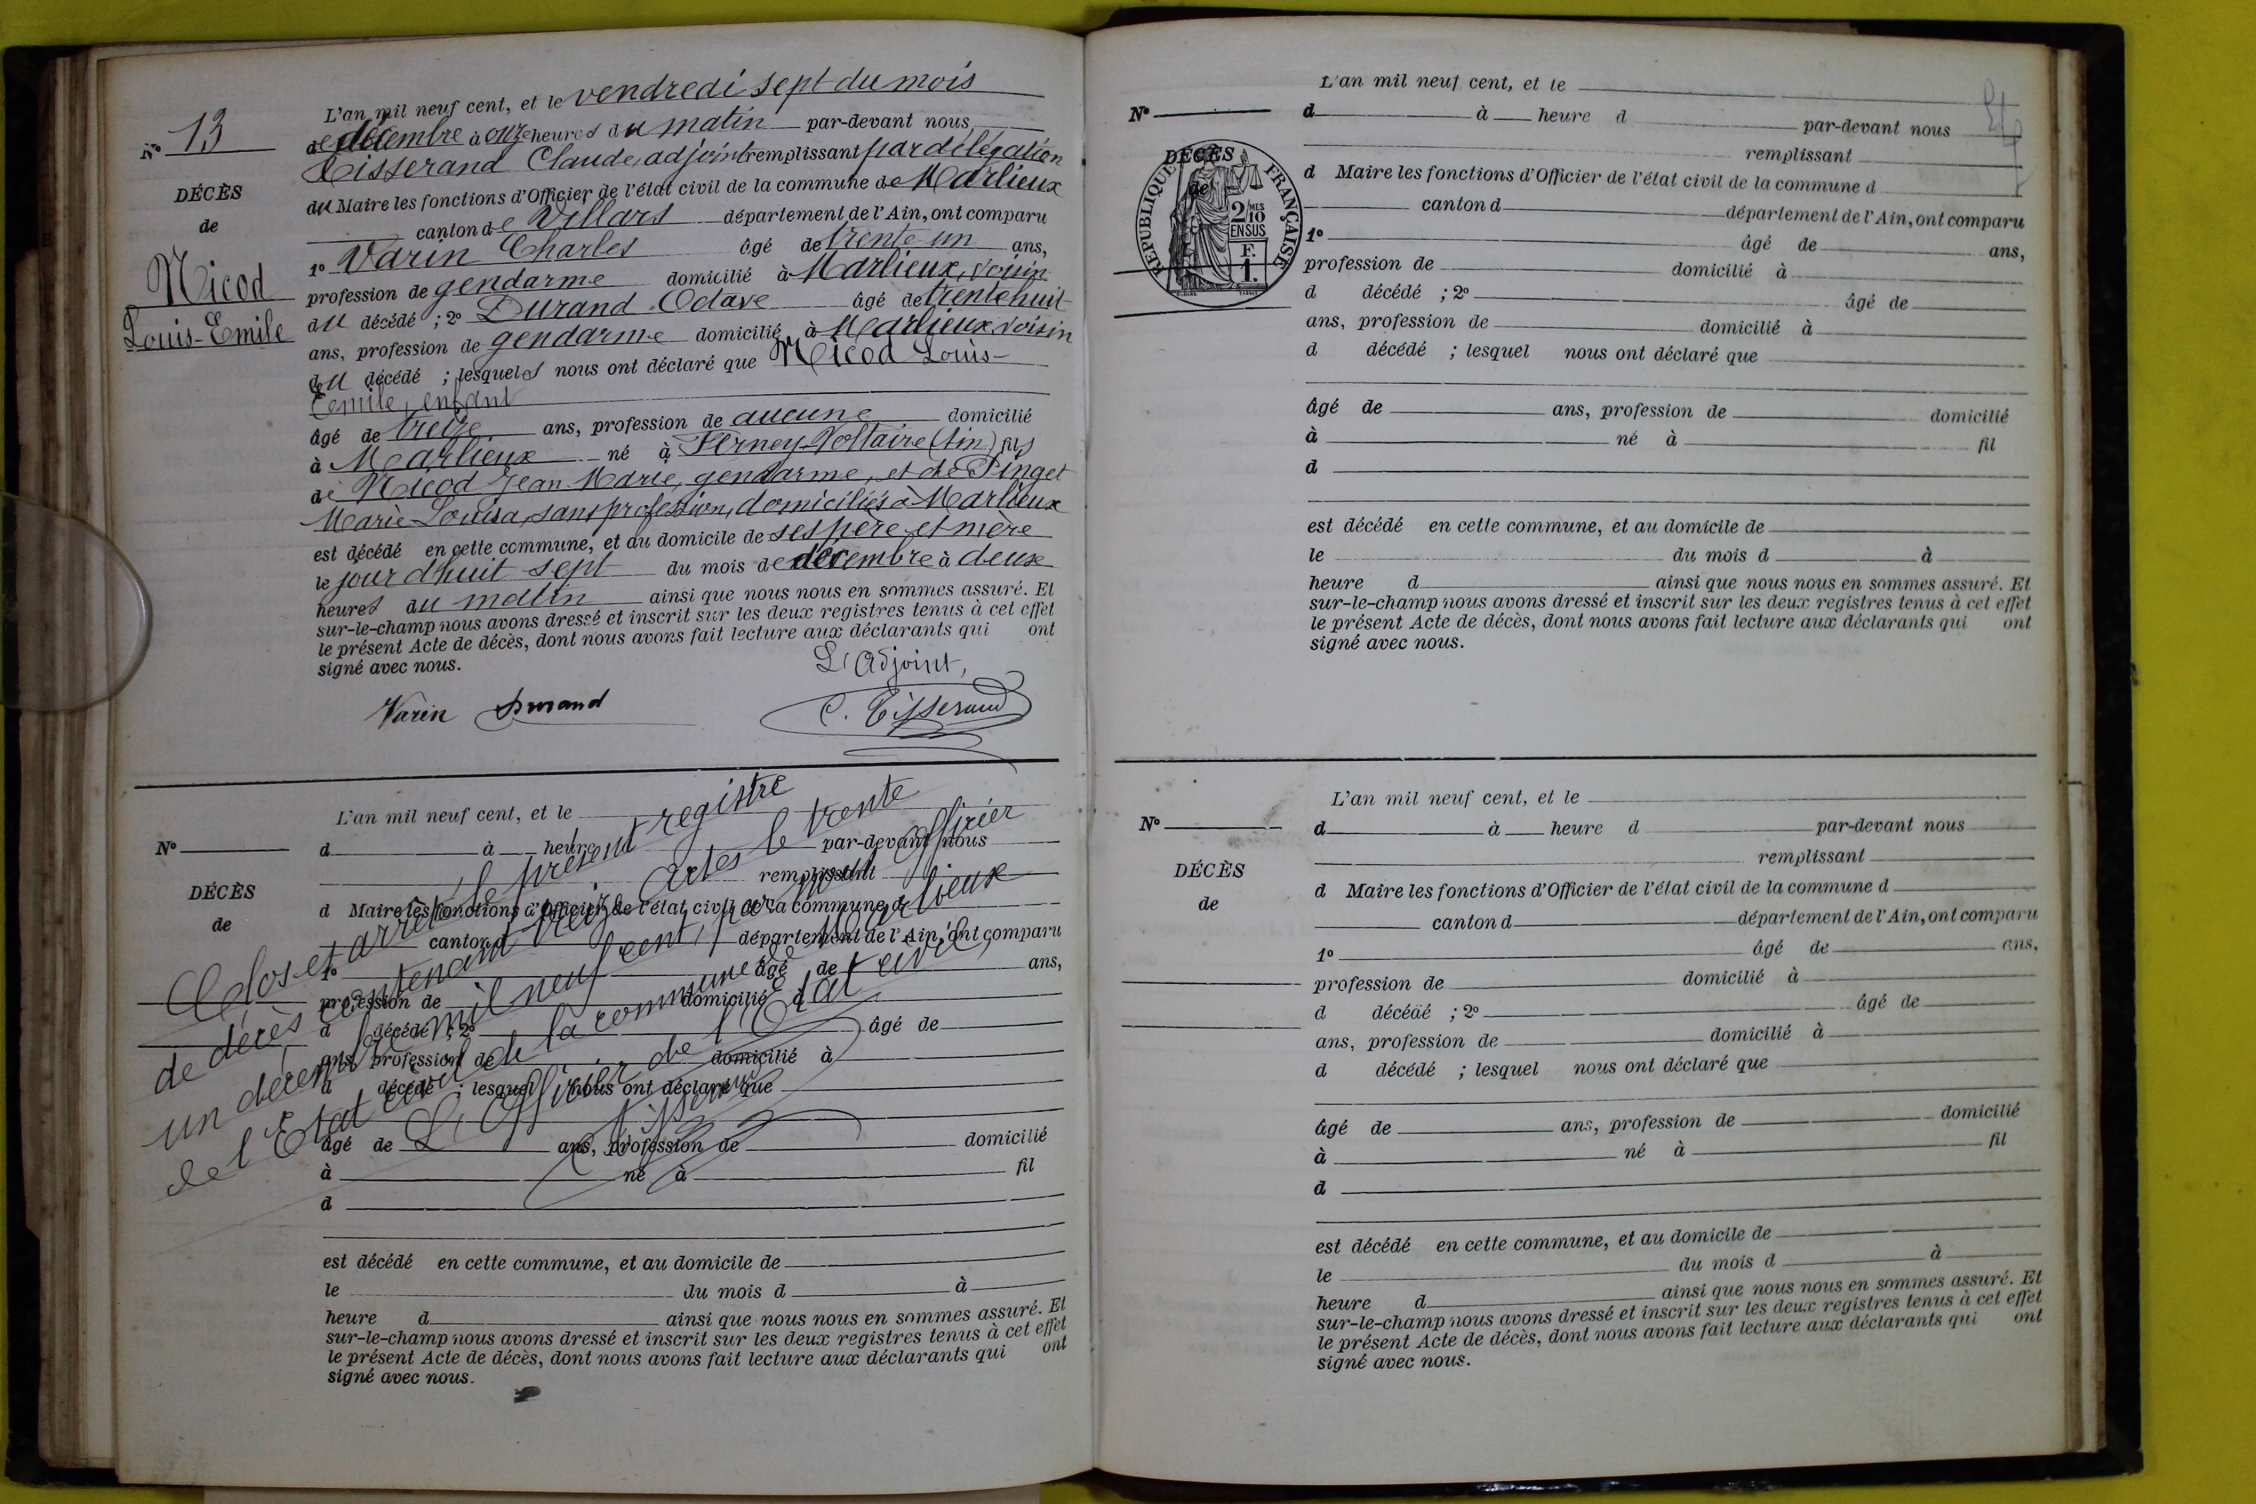 N° 13
DÉCÈS
de
Nicod
Louis-Emile
L'an mil neuf cent, et le vendredi sept du mois
de décembre à onze heures du matin par-devant nous
Tisserand Claude, adjoint remplissant par délégation
du Maire les fonctions d'Officier de l'état civil de la commune de Marlieux
canton de Villars département de l'Ain, ont comparu
1° Varin Charles âgé de trente un ans,
profession de gendarme domicilié à Marlieux, voisin
du décédé ; 2° Durand Octave âgé de trente huit
ans, profession de gendarme domicilié à Marlieux, voisin
du décédé ; lesquels nous ont déclaré que Nicod Louis-
Emile, enfant
âgé de treize ans, profession de aucune domicilié
à Marlieux né à Ferney-Voltaire (Ain) fils
de Nicod Jean Marie, gendarme, et de Pinget
Marie Louisa, sans profession, domiciliés à Marlieux
est décédé en cette commune, et au domicile de ses père et mère
le jour d'huit sept du mois de décembre à deux
heures du matin ainsi que nous nous en sommes assuré. Et
sur-le-champ nous avons dressé et inscrit sur les deux registres tenus à cet effet
le présent Acte de décès, dont nous avons fait lecture aux déclarants qui ont
signé avec nous.
L'Adjoint,
Varin Durand C. Tisserand
N°
DÉCÈS
de
L'an mil neuf cent, et le
d à heure par-devant nous
remplissant
d Maire les fonctions d'Officier de l'état civil de la commune d
canton d département de l'Ain, ont comparu
1° âgé de ans,
profession de domicilié à
d décédé ; 2° âgé de
ans, profession de domicilié à
d décédé ; lesquel nous ont déclaré que
âgé de ans, profession de domicilié
à né à fil
d
est décédé en cette commune, et au domicile de
le du mois d à
heure d ainsi que nous nous en sommes assuré. Et
sur-le-champ nous avons dressé et inscrit sur les deux registres tenus à cet effet
le présent Acte de décès, dont nous avons fait lecture aux déclarants qui ont
signé avec nous.
Clos et arrêté le présent registre
de décès contenant treize actes le trente
un décembre mil neuf cent, par nous Officier
de l'Etat civil de la commune de Marlieux
L'Officier de l'Etat civil,
C. Tisserand
N°
DÉCÈS
de
RÉPUBLIQUE FRANÇAISE
2/10 MES
EN SUS
F.
1.
L'an mil neuf cent, et le
d à heure d par-devant nous
remplissant
d Maire les fonctions d'Officier de l'état civil de la commune d
canton d département de l'Ain, ont comparu
1° âgé de ans,
profession de domicilié à
d décédé ; 2° âgé de
ans, profession de domicilié à
d décédé ; lesquel nous ont déclaré que
âgé de ans, profession de domicilié
à né à fil
d
est décédé en cette commune, et au domicile de
le du mois d à
heure d ainsi que nous nous en sommes assuré. Et
sur-le-champ nous avons dressé et inscrit sur les deux registres tenus à cet effet
le présent Acte de décès, dont nous avons fait lecture aux déclarants qui ont
signé avec nous.
N°
DÉCÈS
de
L'an mil neuf cent, et le
d à heure d par-devant nous
remplissant
d Maire les fonctions d'Officier de l'état civil de la commune d
canton d département de l'Ain, ont comparu
1° âgé de ans,
profession de domicilié à
d décédé ; 2° âgé de
ans, profession de domicilié à
d décédé ; lesquel nous ont déclaré que
âgé de ans, profession de domicilié
à né à fil
d
est décédé en cette commune, et au domicile de
le du mois d à
heure d ainsi que nous nous en sommes assuré. Et
sur-le-champ nous avons dressé et inscrit sur les deux registres tenus à cet effet
le présent Acte de décès, dont nous avons fait lecture aux déclarants qui ont
signé avec nous.